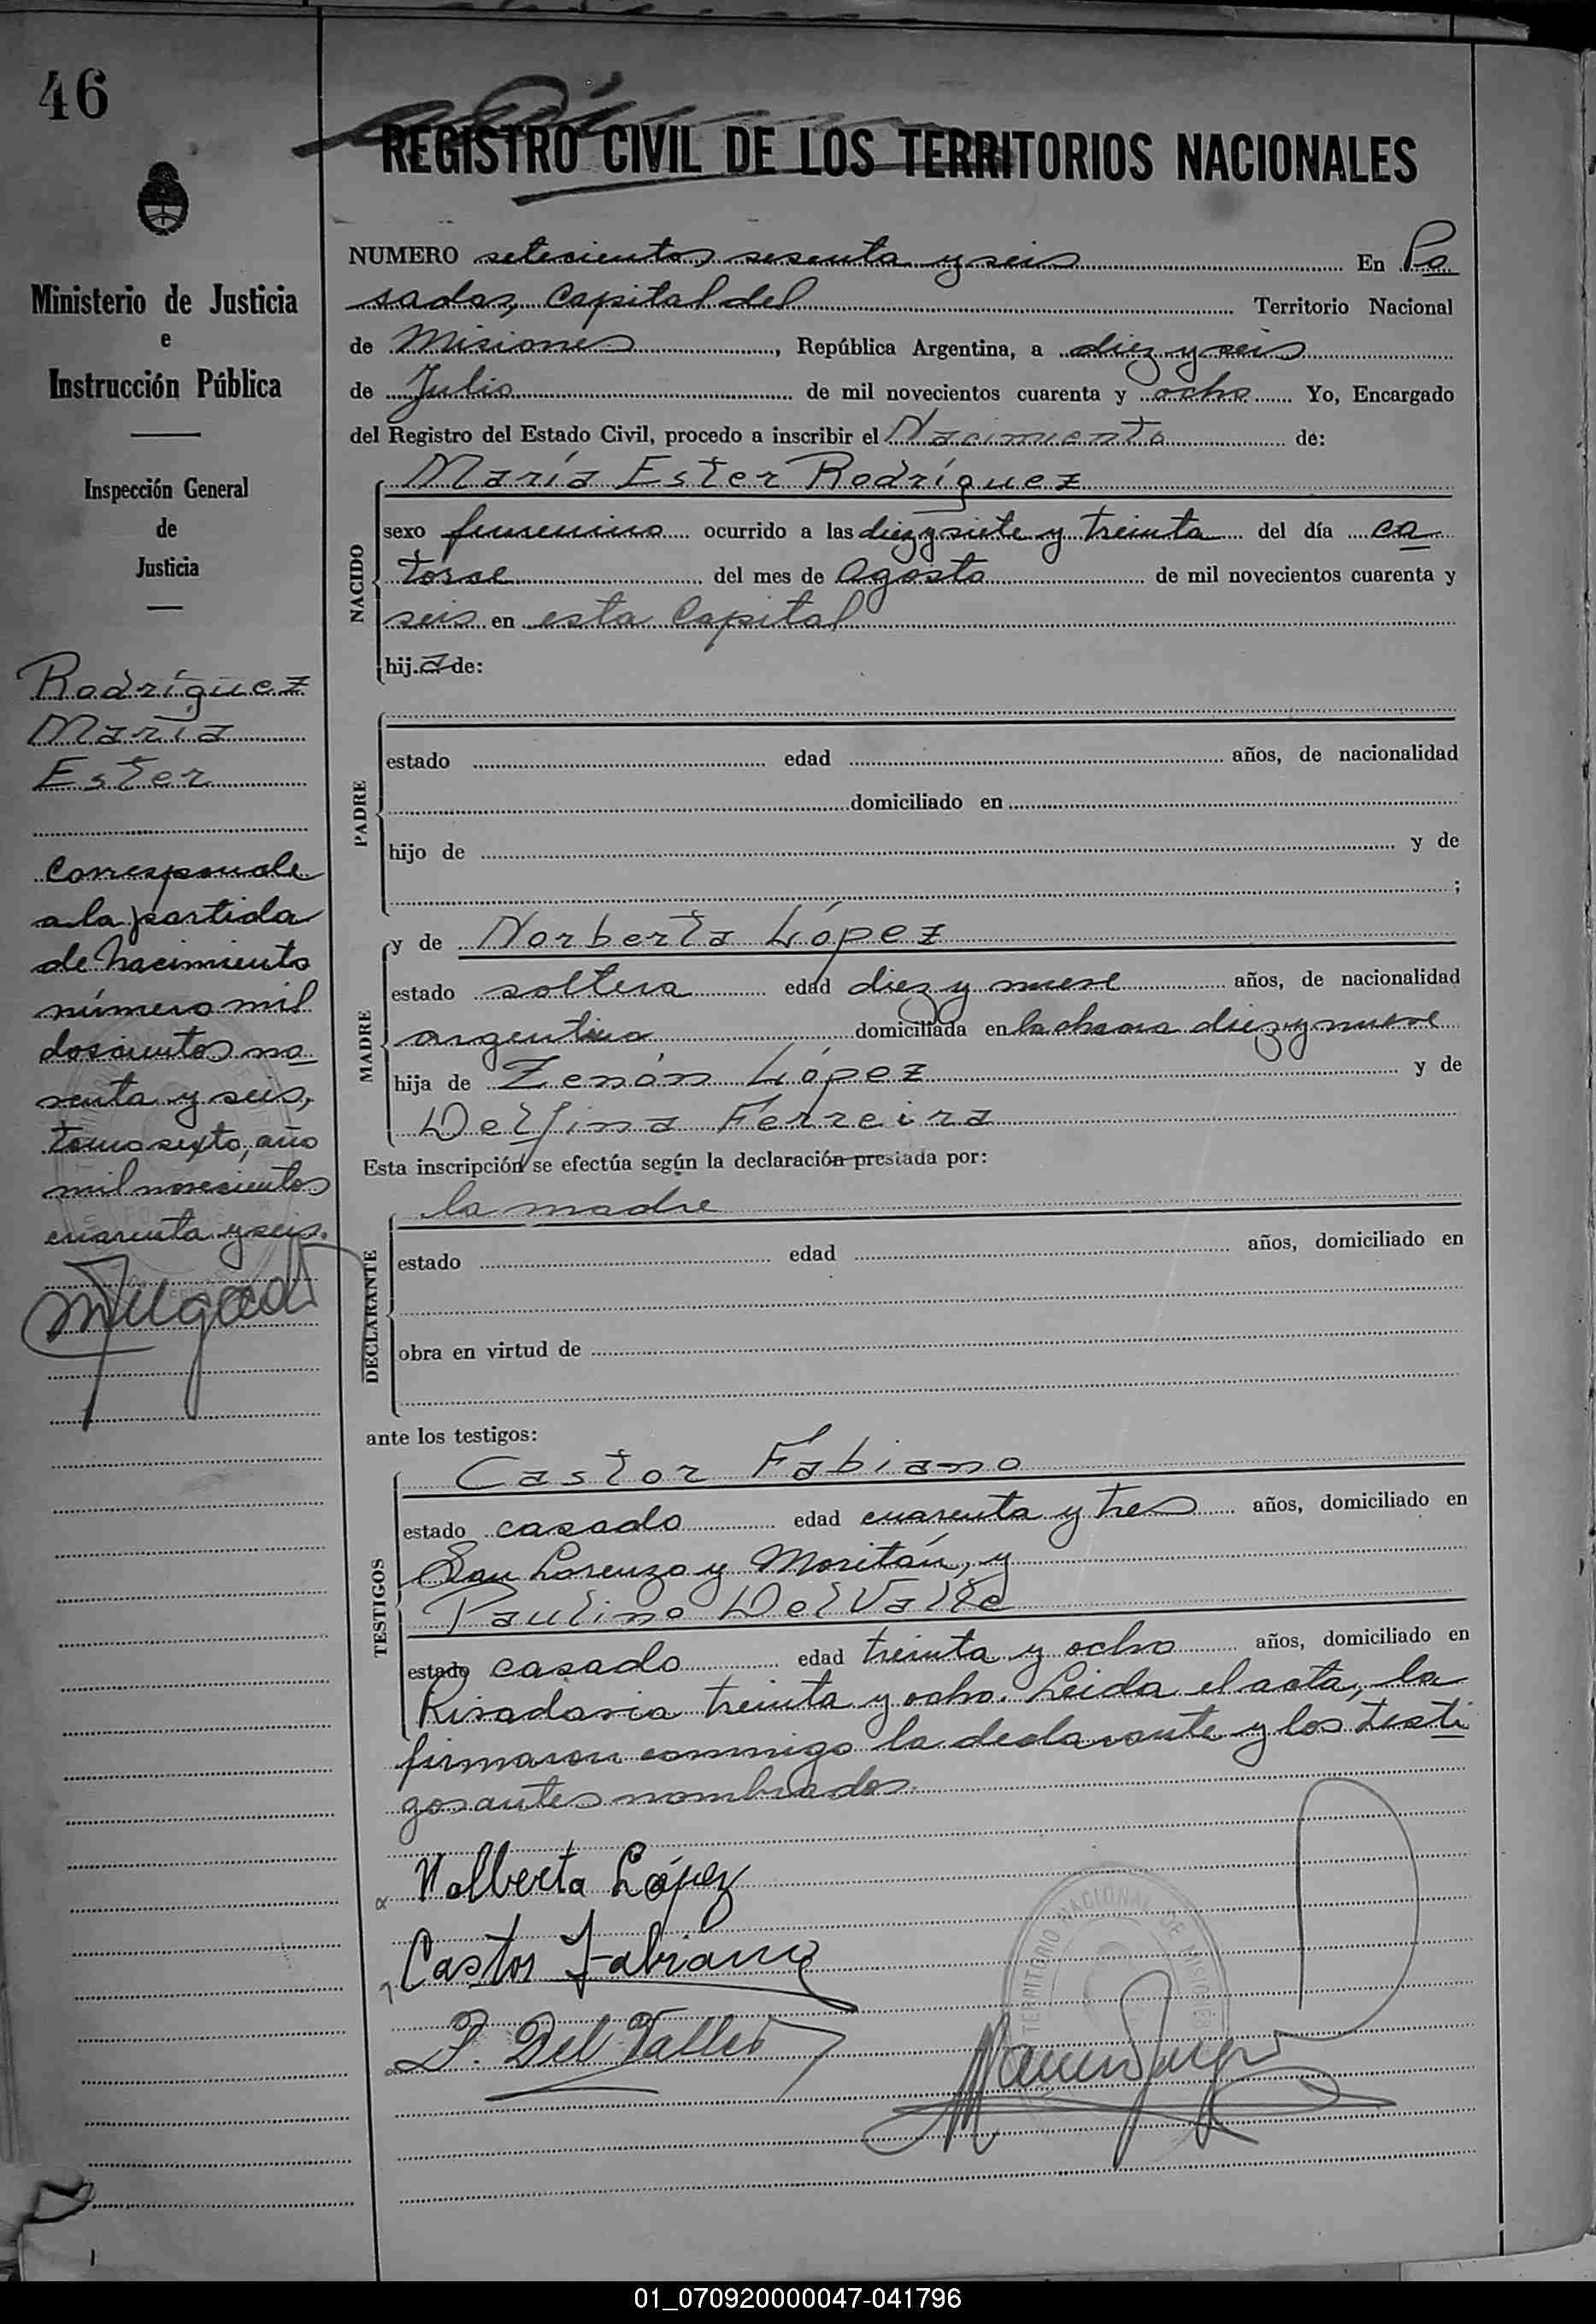 46
REGISTRO CIVIL DE LOS TERRITORIOS NACIONALES
Ministerio de Justicia
e
Instrucción Pública
Inspección General
de
Justicia
Rodríguez
María
Ester
Corresponde
a la partida
de nacimiento
número mil
doscientos no
venta y seis,
tomo sexto, año
mil novecientos
cuarenta y seis.
NUMERO setecientos sesenta y seis En Po
sadas, Capital del Territorio Nacional
de Misiones, República Argentina, a diez y seis
de Julio de mil novecientos cuarenta y ocho Yo, Encargado
del Registro del Estado Civil, procedo a inscribir el Nacimiento de:
María Ester Rodríguez
NACIDO
sexo femenino ocurrido a las diez y siete y treinta del día ca
torce del mes de Agosto de mil novecientos cuarenta y
seis en esta Capital
hija de:
PADRE
estado edad años, de nacionalidad
domiciliado en
hijo de y de
;
MADRE
y de Norberta López
estado soltera edad diez y nueve años, de nacionalidad
argentina domiciliada en la chacra diez y nueve
hija de Zenón López y de
Delfina Ferreira
Esta inscripción se efectúa según la declaración prestada por:
la madre
DECLARANTE
estado edad años, domiciliado en
obra en virtud de
ante los testigos:
Castor Fabiano
TESTIGOS
estado casado edad cuarenta y tres años, domiciliado en
San Lorenzo y Moritán, y
Paulino Del Valle
estado casado edad treinta y ocho años, domiciliado en
Rivadavia treinta y ocho. Leida el acta, la
firmaron conmigo la declarante y los testi
gos antes nombrados.
Nolberta López
Castor Fabiano
P. Del Valle
TERRITORIO NACIONAL DE MISIONES
01_070920000047-041796